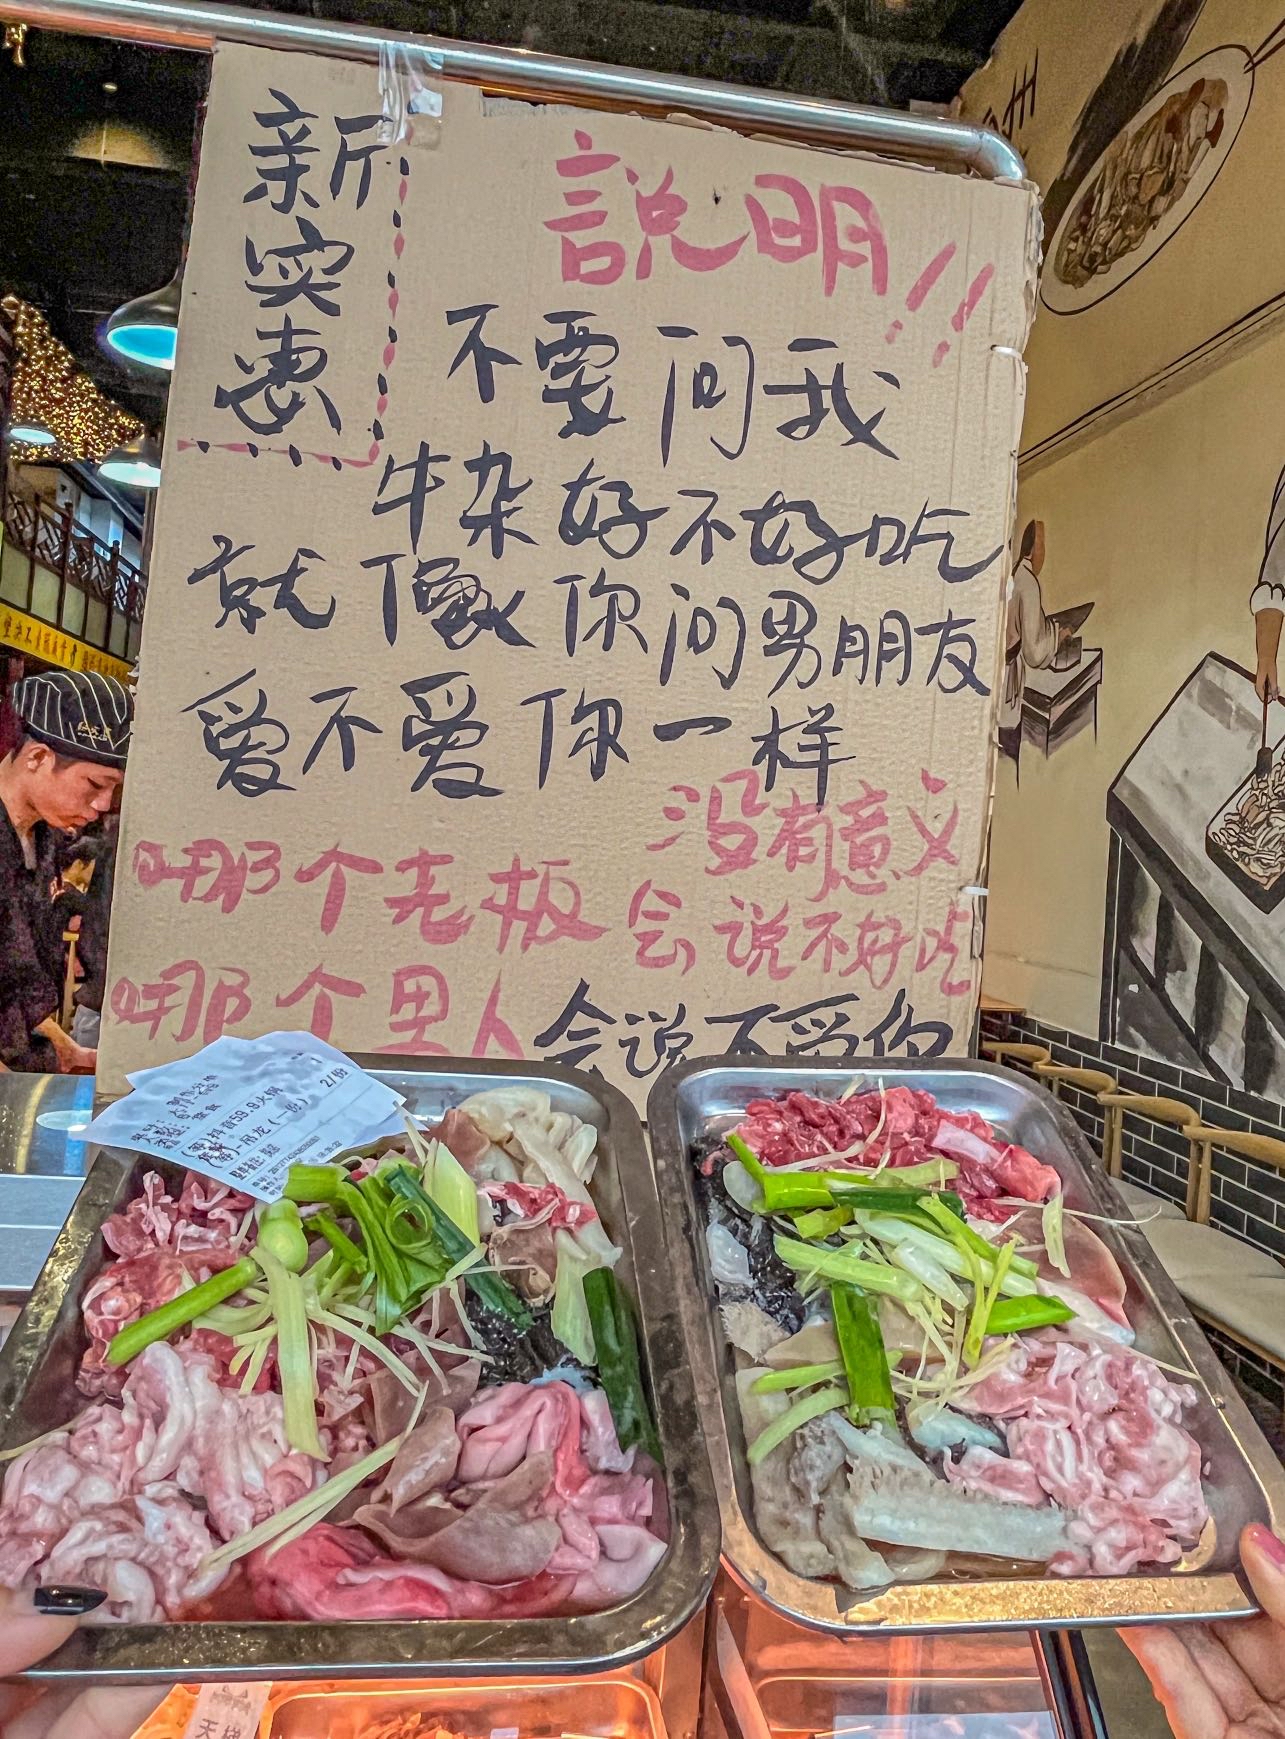 新实惠
説明!!
不要问我
牛杂好不好吃
就像你问男朋友
爱不爱你一样
没有意义
哪个老板会说不好吃
哪个男人会说不爱你
2/份
(套)抖音59.9火锅
吊龙(一份)